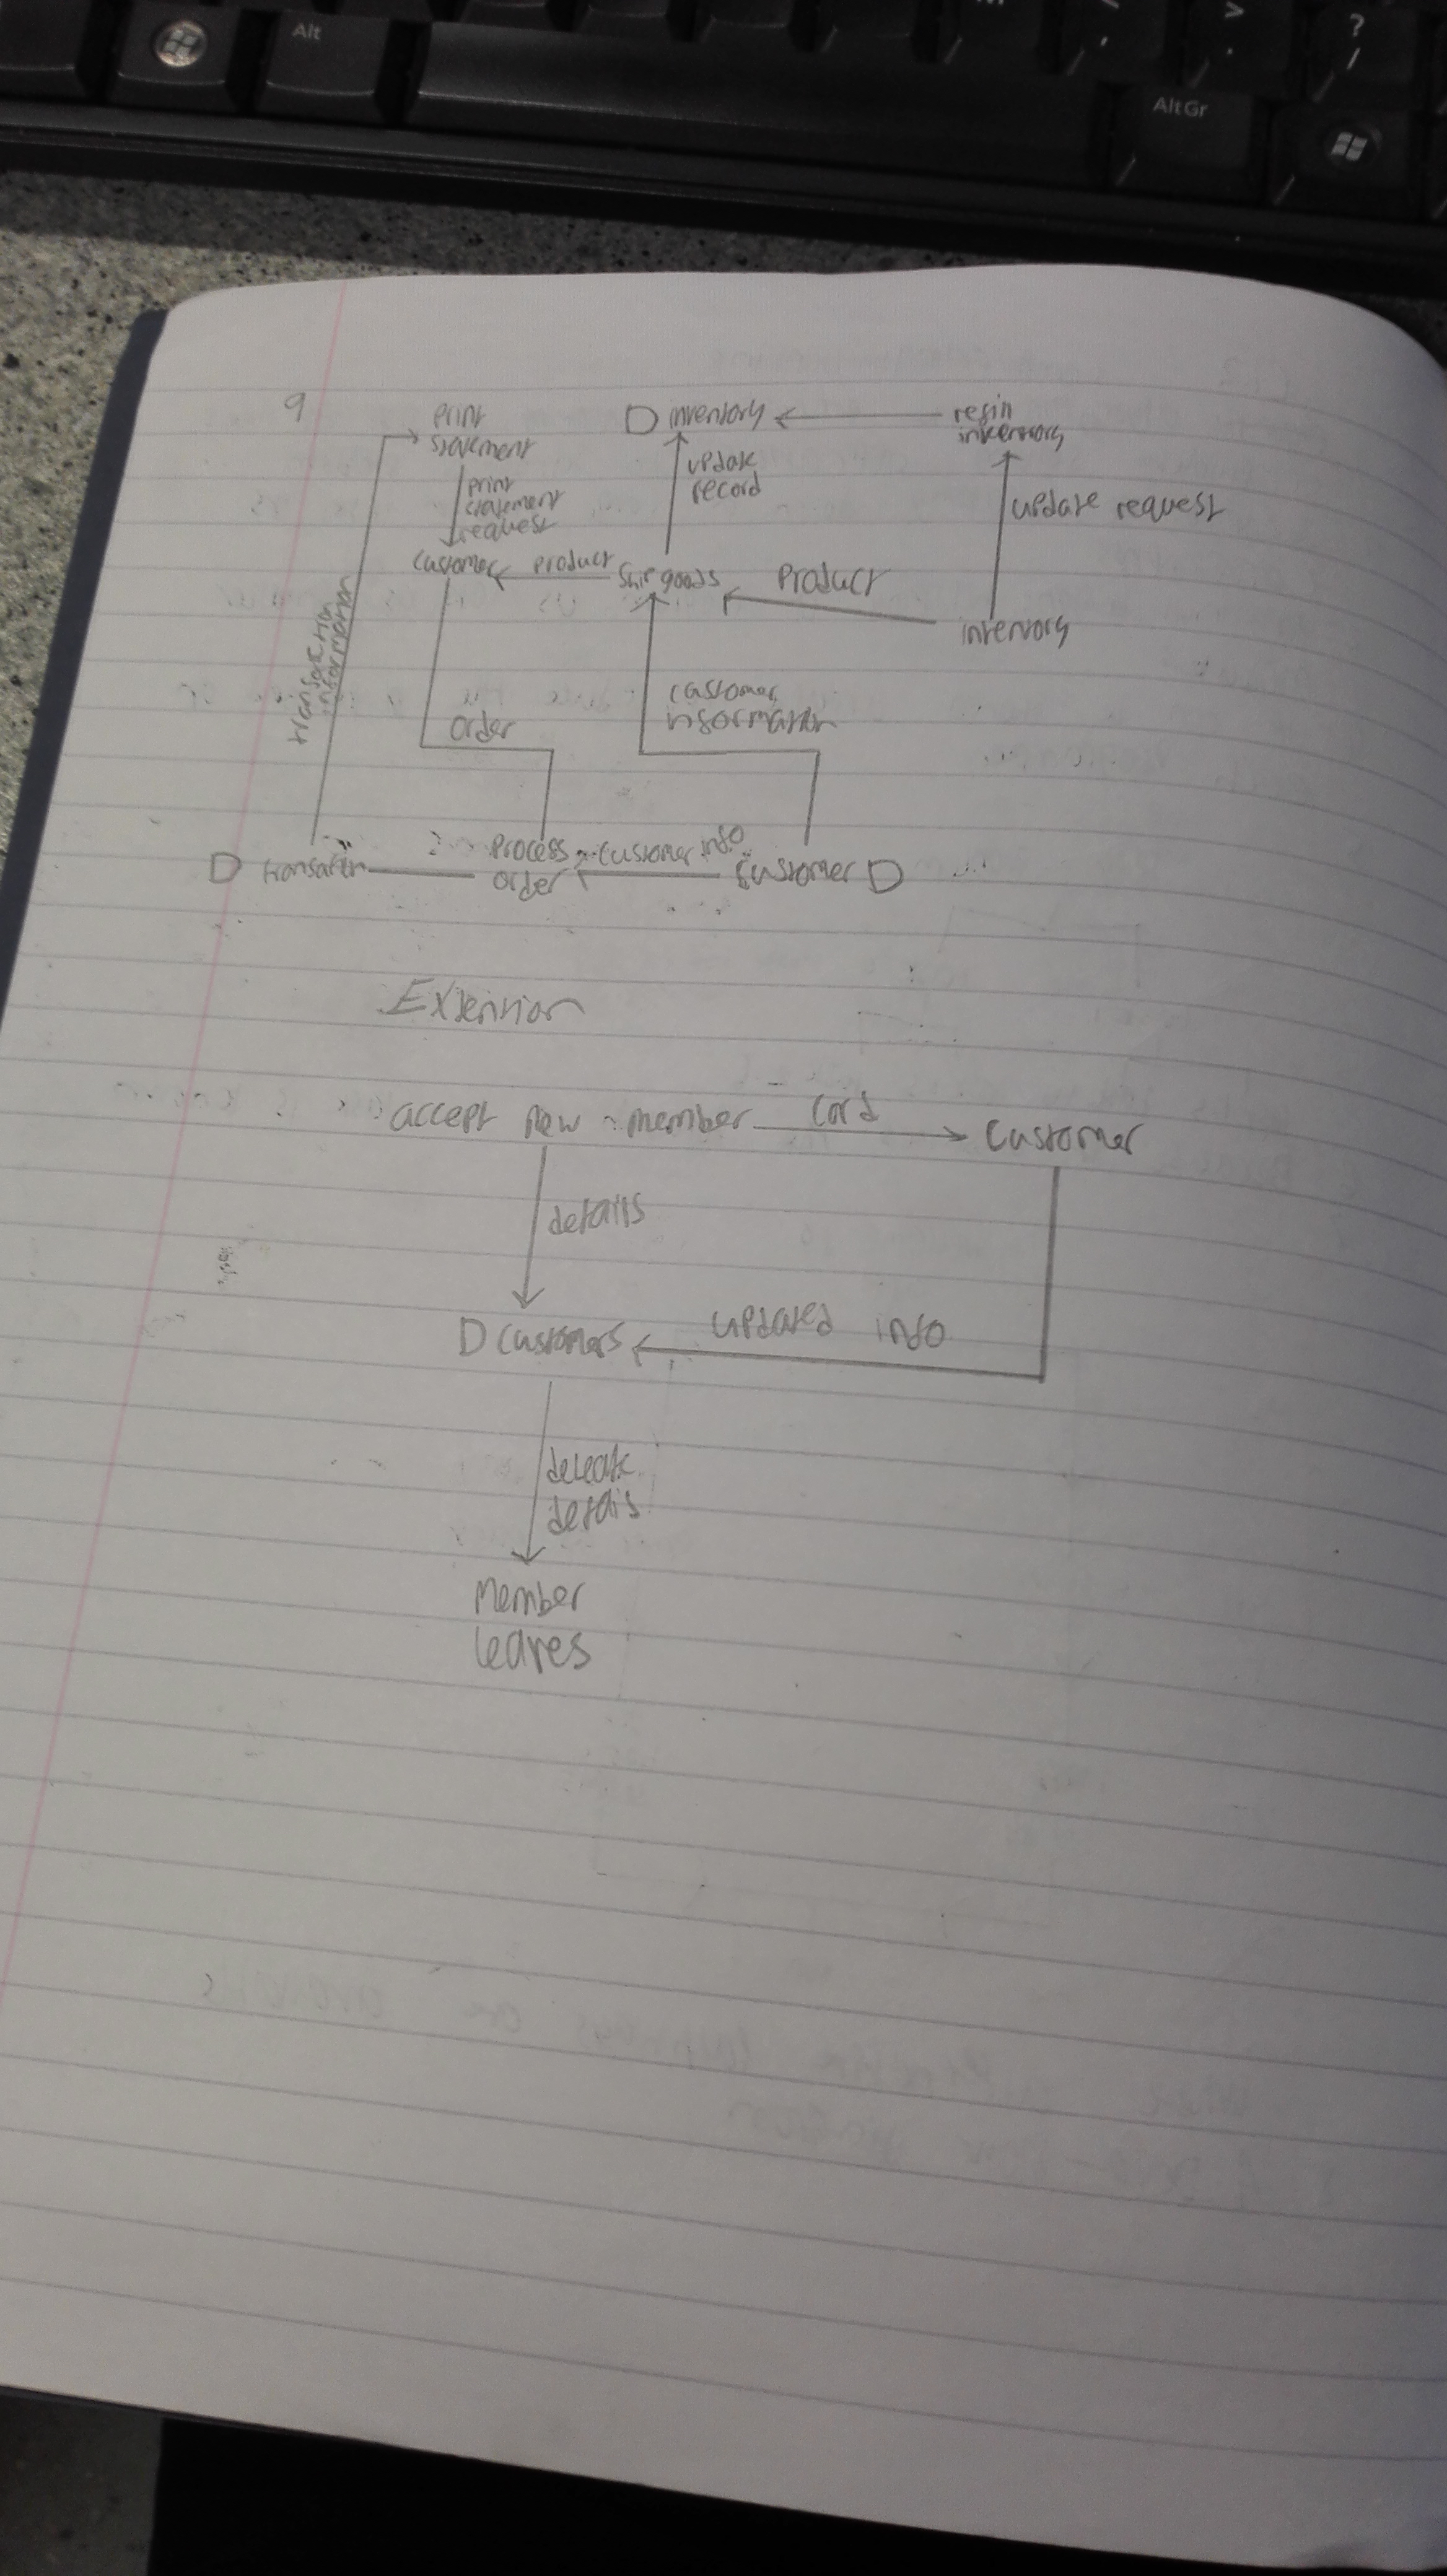 Alt
?
/
>
.
AltGr
9
print
statement
D inventory
refill
inventory
print
statement
request
update
record
update request
customer
product
ship goods
product
inventory
transaction
information
order
customer
information
D
process
order
customer info
customer D
Extension
accept new member
card
customer
details
D customers
updated info
deleate
detais
member
leaves